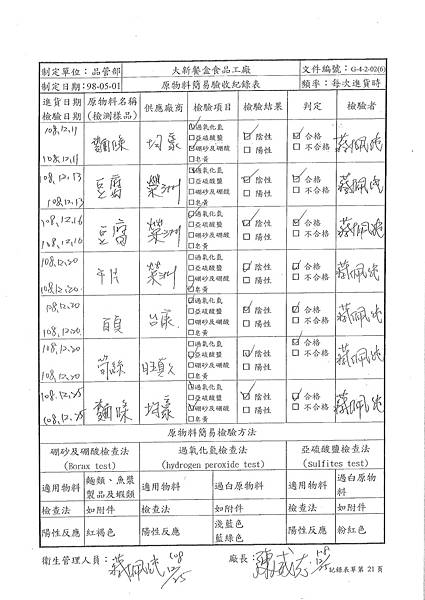 制定單位：品管部 大新餐盒食品工廠 文件編號：G-4-2-02(6)
制定日期：98-05-01 原物料簡易驗收紀錄表 頻率：每次進貨時
進貨日期 檢驗日期 原物料名稱 (檢測樣品) 供應廠商 檢驗項目 檢驗結果 判定 檢驗者
108.12.11
☑過氧化氫
□亞硫酸鹽
☑硼砂及硼酸
□皂黃
☑陰性
□陽性
☑合格
□不合格
108.12.11
108.12.13
豆腐
□過氧化氫
□亞硫酸鹽
□硼砂及硼酸
□皂黃
☑陰性
□陽性
☑合格
□不合格
108.12.13
108.12.16
豆腐
□過氧化氫
□亞硫酸鹽
□硼砂及硼酸
□皂黃
☑陰性
□陽性
☑合格
□不合格
108.12.16
108.12.20
□過氧化氫
□亞硫酸鹽
□硼砂及硼酸
□皂黃
☑陰性
□陽性
☑合格
□不合格
108.12.20
108.12.20
□過氧化氫
□亞硫酸鹽
□硼砂及硼酸
□皂黃
☑陰性
□陽性
☑合格
□不合格
108.12.20
108.12.20
筍絲
□過氧化氫
☑亞硫酸鹽
□硼砂及硼酸
□皂黃
☑陰性
□陽性
☑合格
□不合格
108.12.20
108.12.25
□過氧化氫
□亞硫酸鹽
☑硼砂及硼酸
□皂黃
☑陰性
□陽性
☑合格
□不合格
108.12.25
原物料簡易檢驗方法
硼砂及硼酸檢查法 過氧化氫檢查法 亞硫酸鹽檢查法
(Borax test) (hydrogen peroxide test) (Sulfites test)
適用物料 麵類、魚漿製品及蝦類 適用物料 過白原物料 適用物料 過白原物料
檢查法 如附件 檢查法 如附件 檢查法 如附件
陽性反應 紅褐色 陽性反應 淺藍色 藍綠色 陽性反應 粉紅色
衛生管理人員： 108 12/25 廠長： 108 12/25
記錄表單第 21 頁